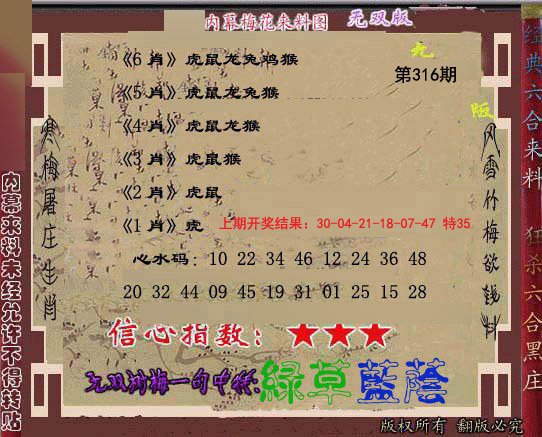 内幕梅花来料图 无双版
第316期
《6 肖》虎鼠龙兔鸡猴
《5 肖》虎鼠龙兔猴
《4 肖》虎鼠龙猴
《3 肖》虎鼠猴
《2 肖》虎鼠
《1 肖》虎
上期开奖结果：30-04-21-18-07-47 特35
心水码：10 22 34 46 12 24 36 48
20 32 44 09 45 19 31 01 25 15 28
信心指数：★★★
一句中特:綠草藍蔭
版权所有 翻版必究
寒梅屠庄生肖
风雪竹梅欲钱料
内幕来料未经允许不得转贴
经典六合来料 狂杀六合黑庄